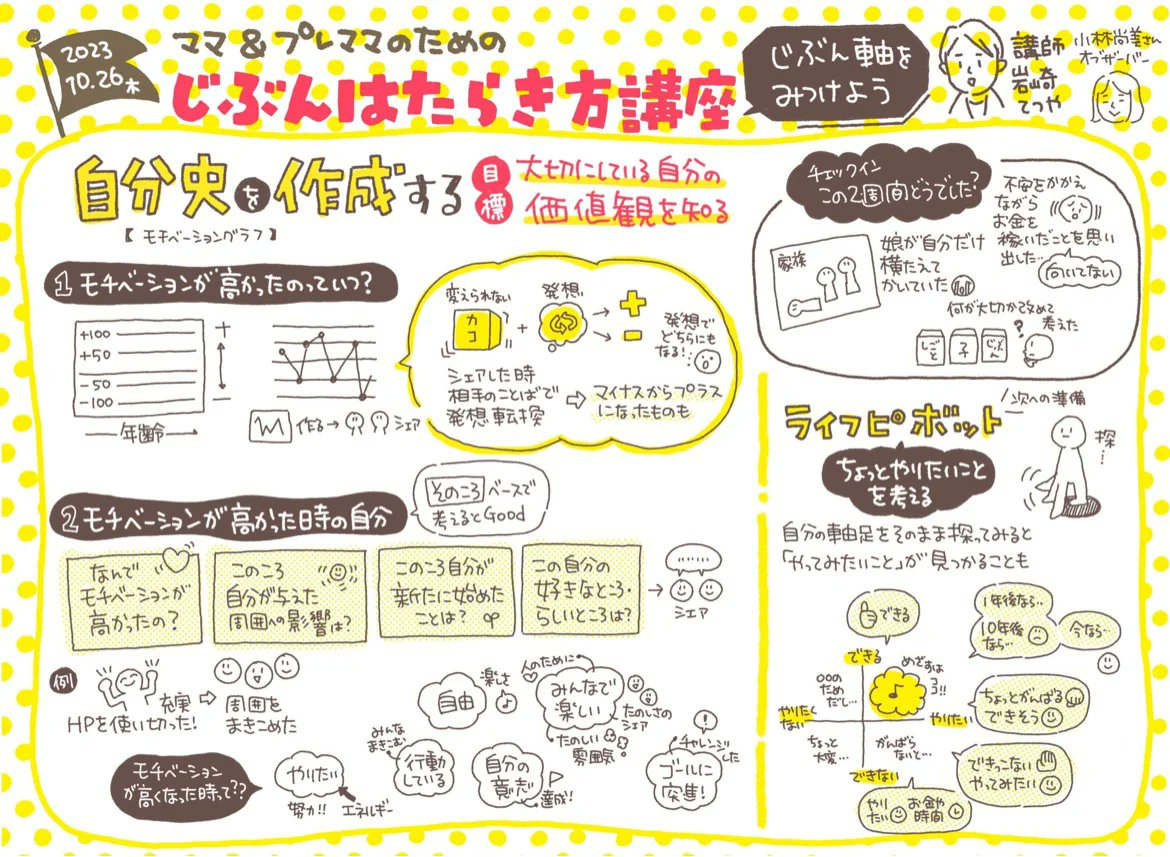 2023
10.26木
ママ&プレママのための
じぶんはたらき方講座
じぶん軸を
みつけよう
講師
岩崎
てつや
小林尚美さん
オブザーバー
自分史を作成する
【モチベーショングラフ】
目標
大切にしている自分の
価値観を知る
1 モチベーションが高かったのっていつ?
+100
+50
-50
-100
+
-
年齢
作る→
シェア
変えられない
カコ
+
発想
→+
→-
発想で
どちらにも
なる!
シェアした時
相手のことばで
発想転換
⇨
マイナスからプラス
になったものも
2 モチベーションが高かった時の自分
そのころベースで
考えるとGood
なんで
モチベーションが
高かったの?
このころ
自分が与えた
周囲への影響は?
このころ自分が
新たに始めた
ことは?
この自分の
好きなところ・
らしいところは?
→
シェア
例
充実
HPを使い切った!
⇨
周囲を
まきこめた
モチベーション
が高くなった時って??
やりたい
努力!!
エネルギー
みんな
まきこむ
行動
している
自由
楽しさ
♪
自分の
意志
達成!
人のために
みんなで
楽しい
たのしさの
シェア
たのしい
雰囲気
!
チャレンジ
した
ゴールに
突進!
チェックイン
この2週間どうでした?
家族
娘が自分だけ
横たえて
かいていた
不安をかかえ
ながら
お金を
稼いだことを思い
出した…
向いてない
何が大切か改めて
考えた
しごと
子
じぶん
?
ライフピボット
次への準備
ちょっとやりたいこと
を考える
探…
自分の軸足をそのまま探ってみると
「やってみたいこと」が見つかることも
できる
できる
めざすは
ココ!!
♪
○○の
ため
だし…
やりたく
ない
やりたい
ちょっと
大変…
がんばら
ないと…
できない
1年後なら…
10年後
なら…
今なら…
ちょっとがんばる
できそう
できっこない
やってみたい
やり
たい
お金や
時間